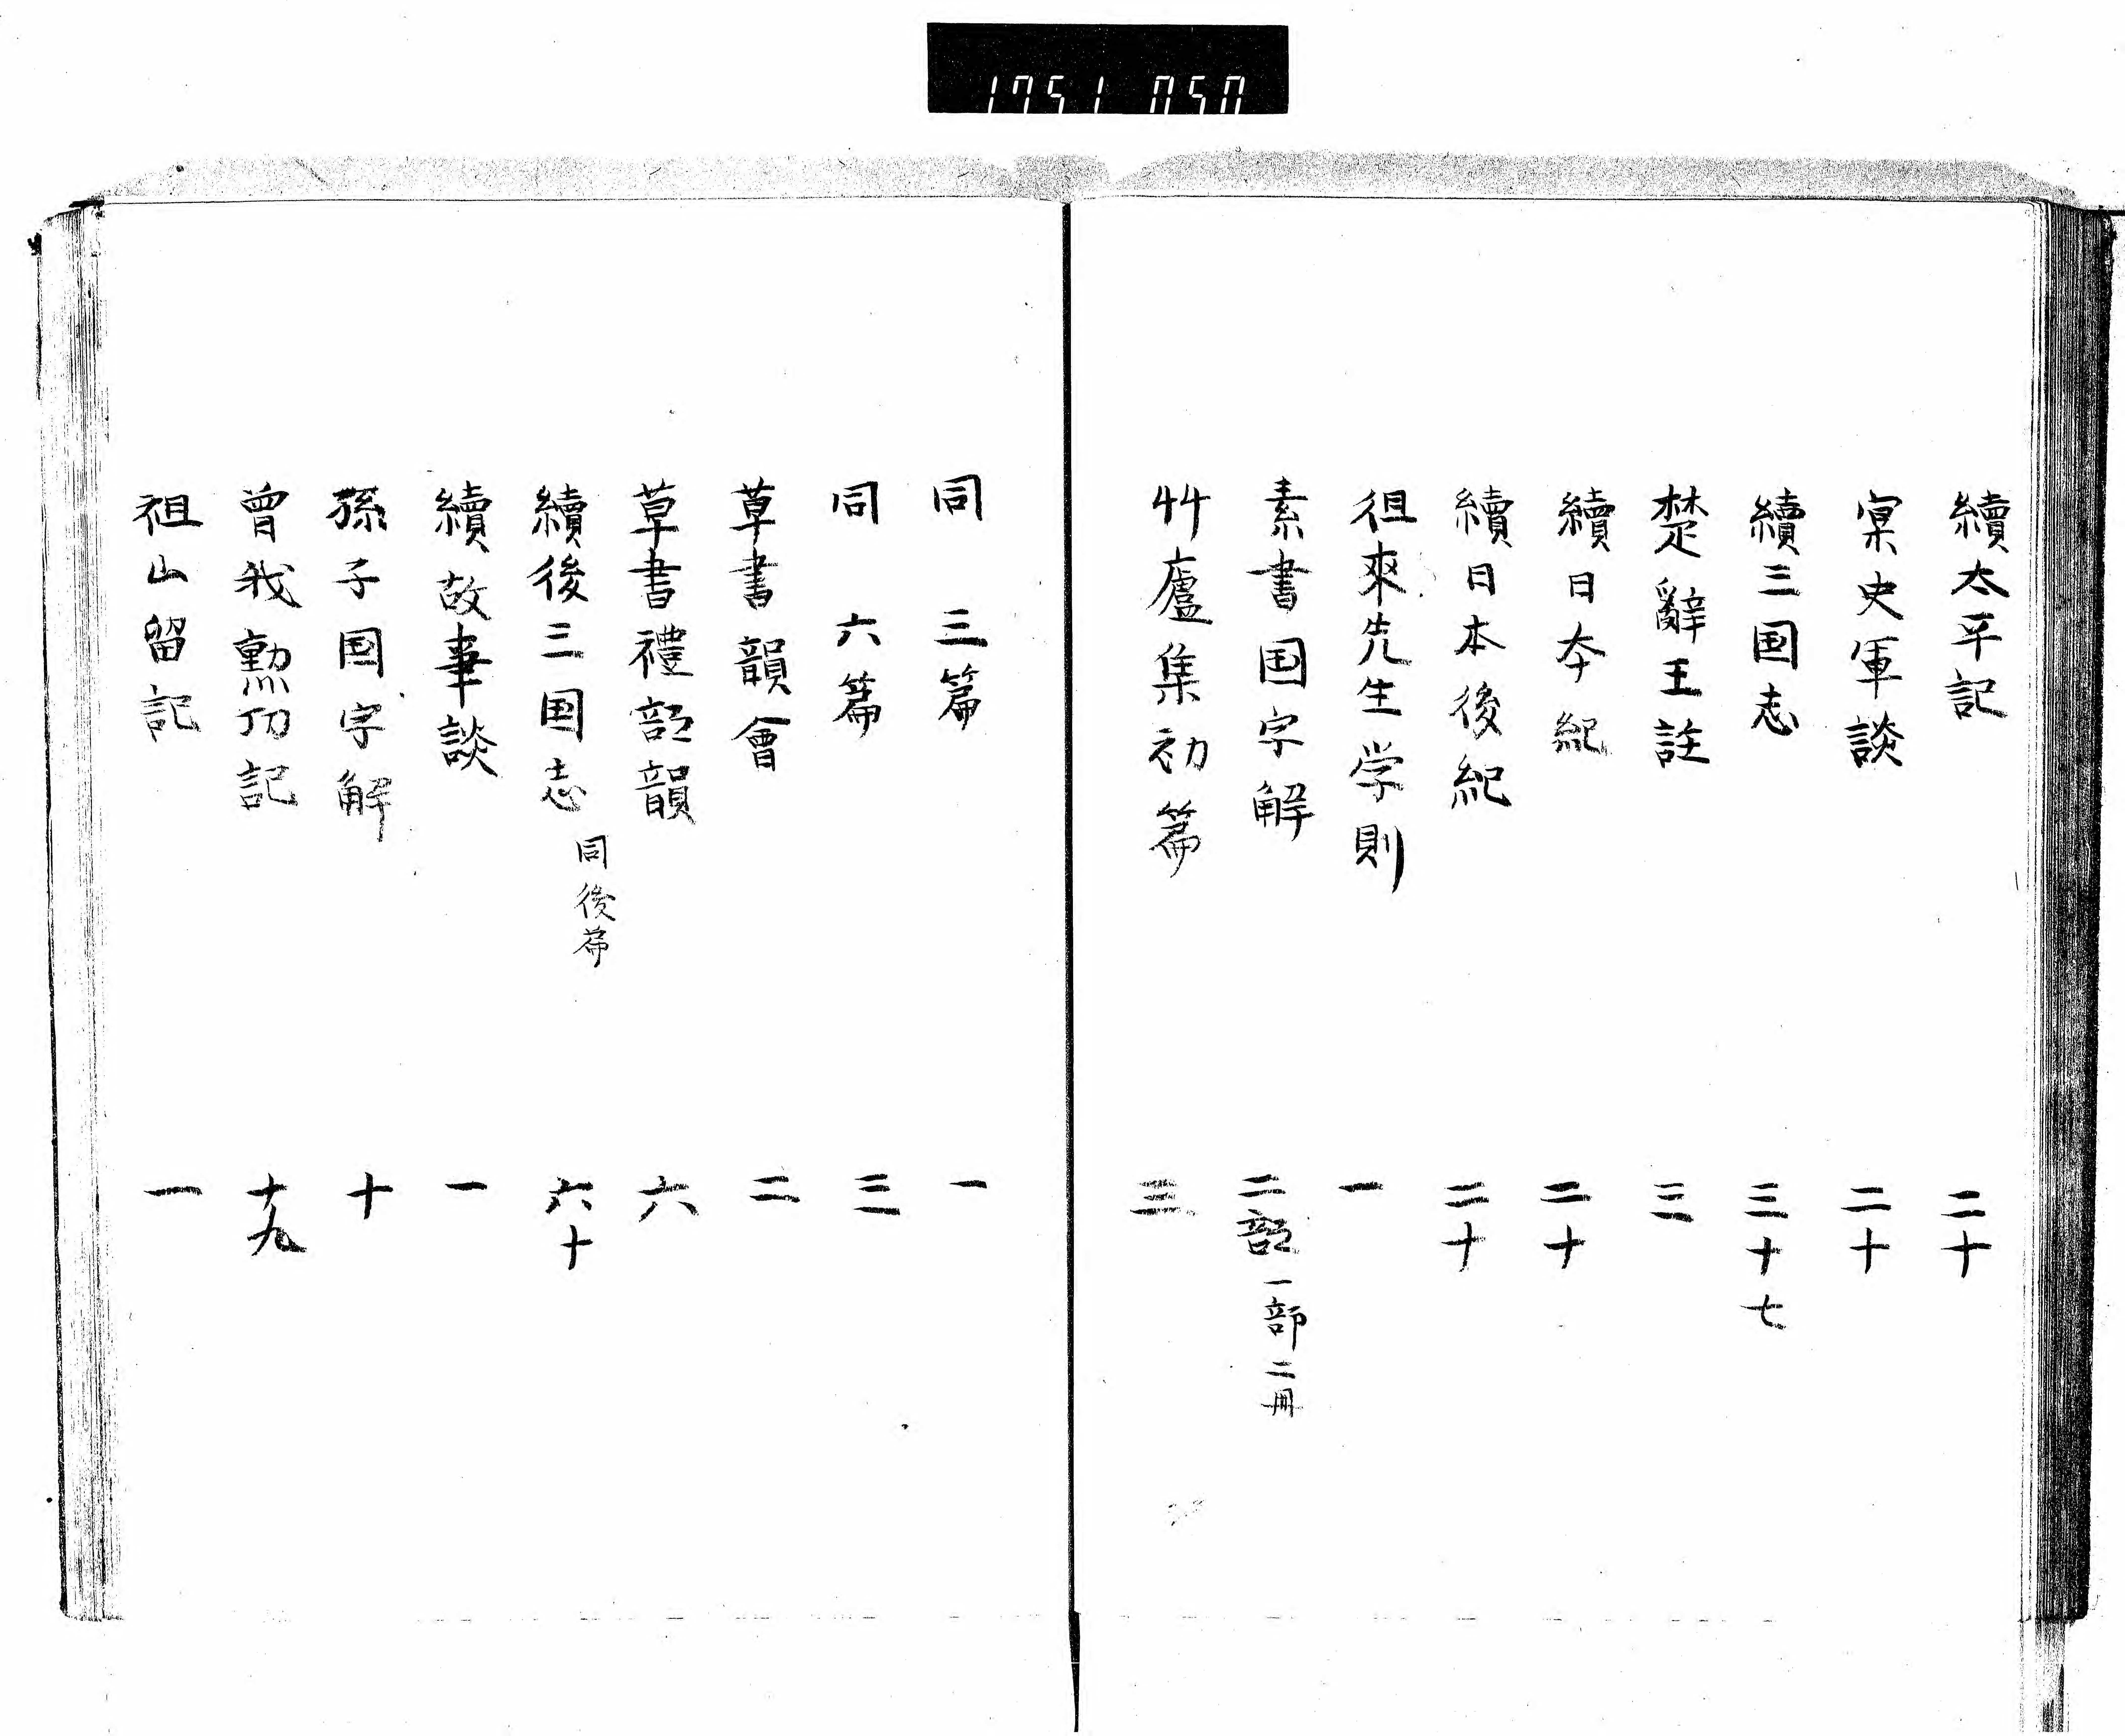 1751 050
續太平記 二十
冥史軍談 二十
續三国志 三十七
楚辭王註 三
續日本紀 二十
續日本後紀 二十
徂來先生学則 一
素書国字解 二部 一部二冊
艸廬集初篇 三
同 三篇 一
同 六篇 三
草書韻會 二
草書禮部韻 六
續後三国志 同後篇 六十
續故事談 一
孫子国字解 十
曾我勲功記 十九
祖山留記 一